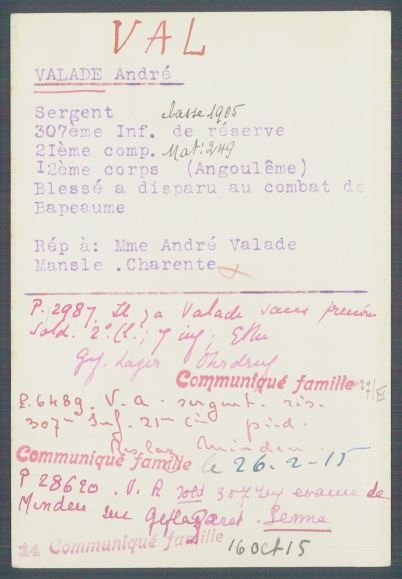 VAL
VALADE André
Sergent classe 1905
307ème Inf. de réserve
21ème comp. Mat: 249
12ème corps (Angoulême)
Blessé a disparu au combat de
Bapeaume
Rép à: Mme André Valade
Mansle .Charente
P. 2987. Il y a Valade sans prénom
Sold. 2° Cl., 7 inf,
Gef. Lager Ohrdruf
Communiqué famille
P. 6489. V. A. sergent. rés.
307me Inf. 21me Cie pied.
Minden.
Communiqué famille le 26-2-15
P 28620. V. A sold 307 Inf evacué de
Minden sur Geflazaret. Senne
24 Communiqué famille 16 Oct 15